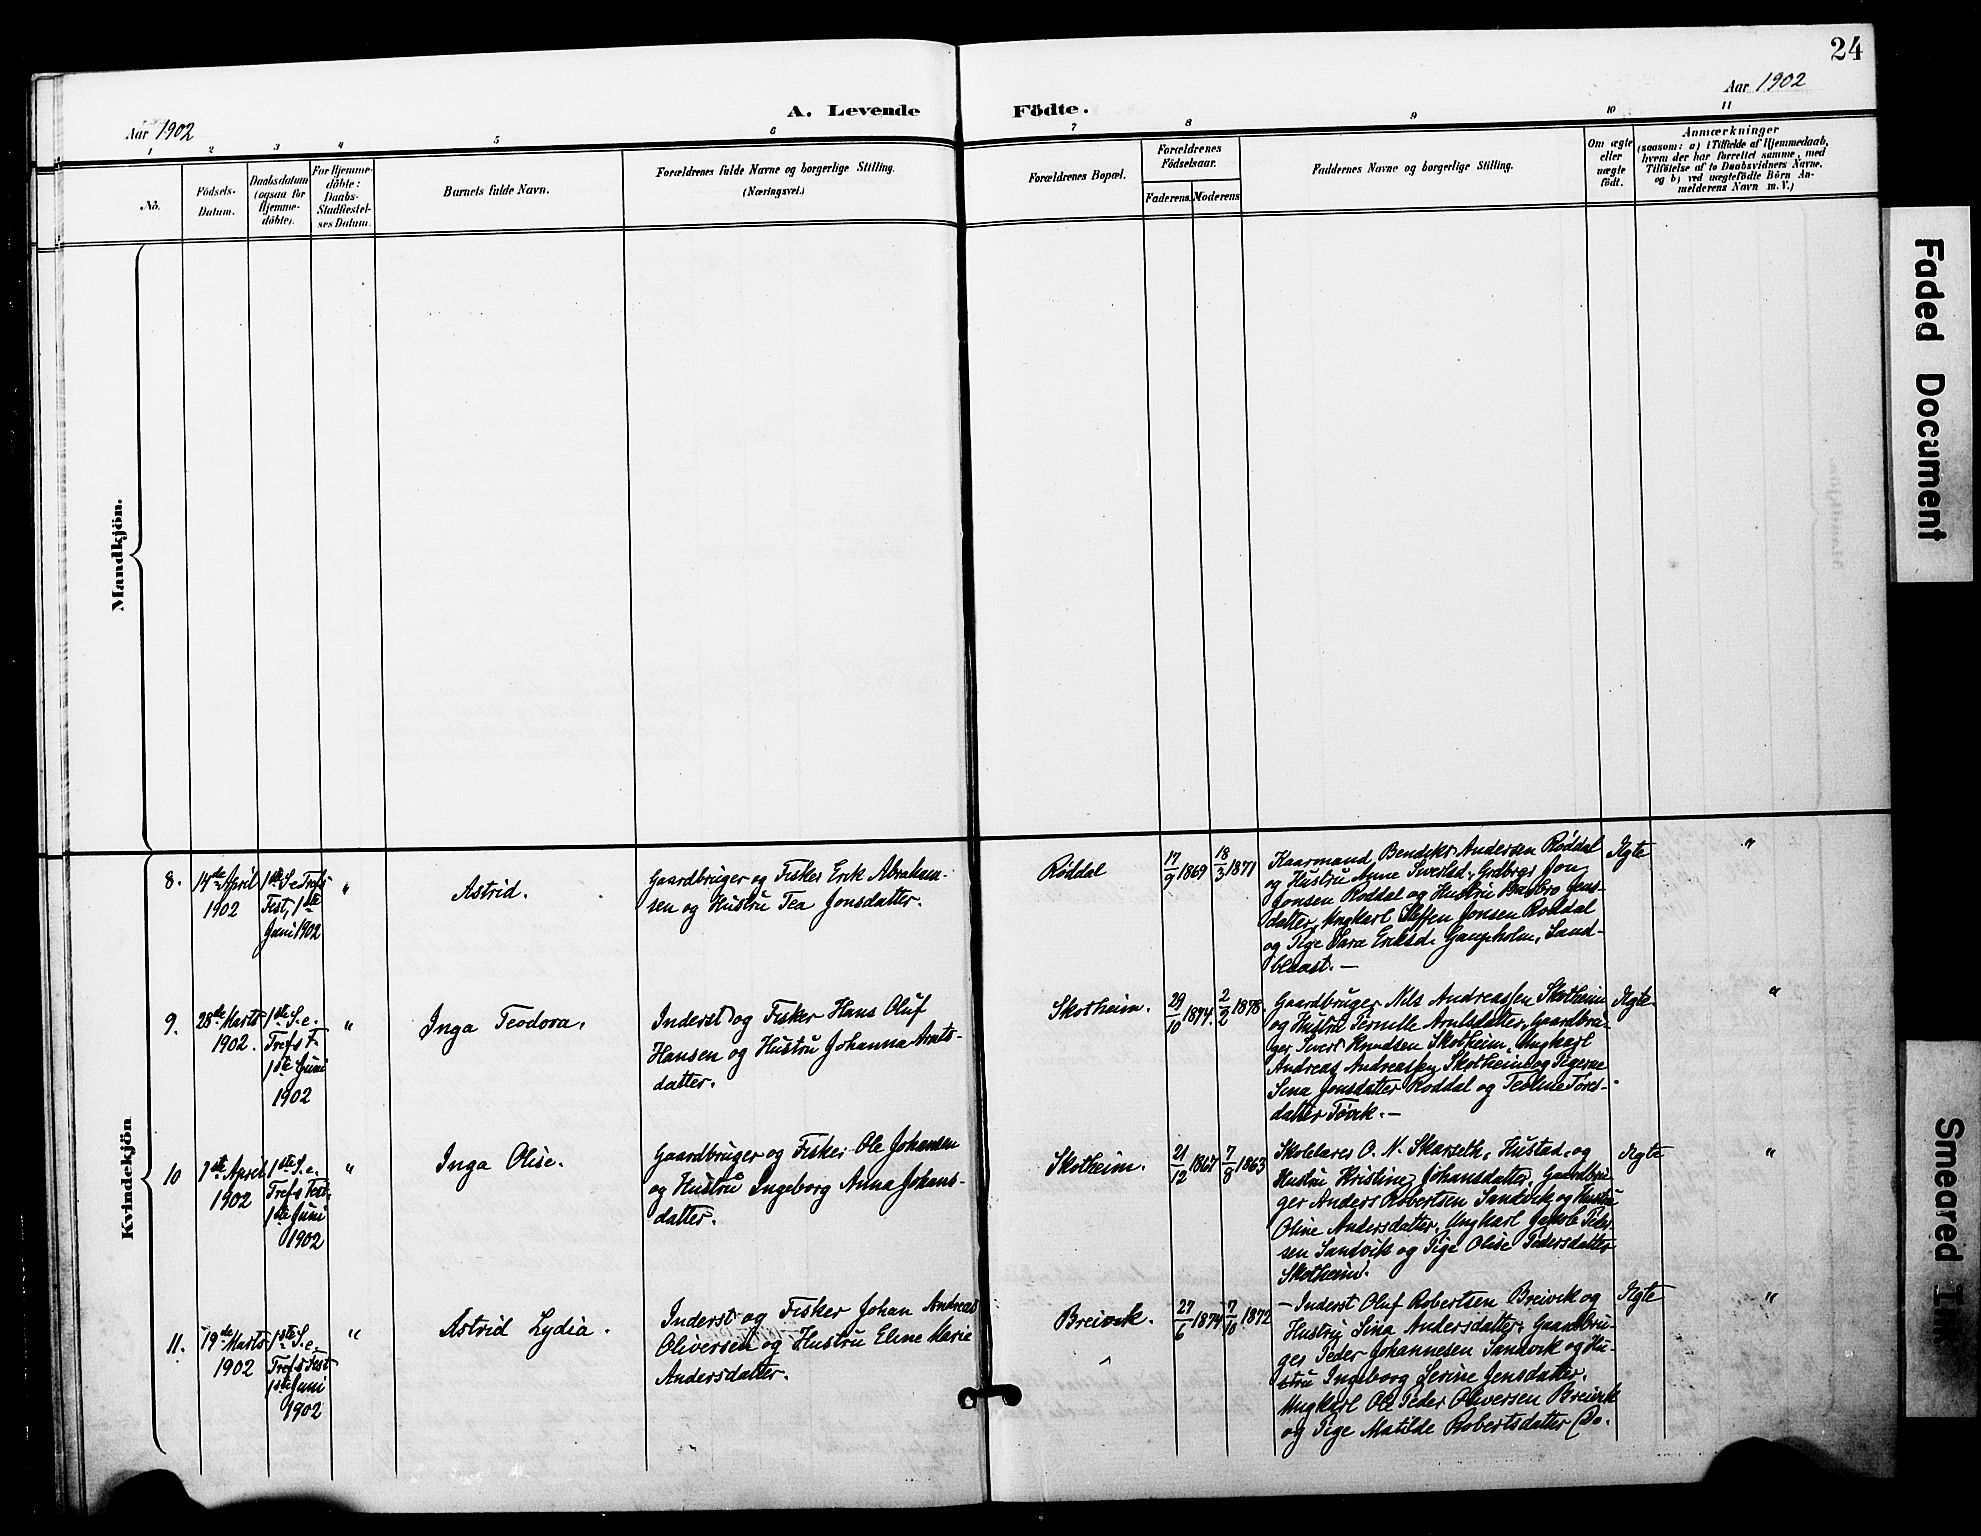 24
Aar 1902
A. Levende Födte.
Aar 1902
1 2 3 4 5 6 7 8 9 10 11
No.
Födsels-
Datum.
Daabsdatum
(ogsaa for
Hjemme-
döbte).
For Hjemme-
döbte:
Daabs-
Stadfæstel-
ses Datum.
Barnets fulde Navn.
Forældrenes fulde Navne og borgerlige Stilling.
(Næringsvei.)
Forældrenes Bopæl.
Forældrenes
Födselsaar.
Faderens. Moderens
Faddernes Navne og borgerlige Stilling.
Om ægte
eller
uægte
födt.
Anmærkninger
(saasom: a) i Tilfælde af Hjemmedaab,
hvem der har forrettet samme, med
Tilföielse af to Daabsvidners Navne,
og b) ved uægtefödte Börn An-
melderens Navn m. V.)
Mandkjön.
Kvindekjön
8.
14de April
1902
1ste S. e. Trefs
Fest, 1ste
Juni 1902
"
Astrid.
Gaardbruger og Fisker Erik Abraham-
sen og Hustru Tea Jonsdatter.
Røddal
17/9 1869
18/3 1871
Kaarmand Bendikt Andersen Røddal
og Hustru Anne Sivertsd., Grdbrgr Jon
Jonsen Roddal og Hustru Barbro Jens-
datter, Ungkarl Steffen Jonsen Roddal
og Pige Sara Eriksd. Gaupholm, Sand-
blaast. —
Ægte
"
9.
28de Marts
1902.
1ste S. e.
Trefs F.
1ste Juni
1902
"
Inga Teodora.
Inderst og Fisker Hans Oluf
Hansen og Hustru Johanna Arnts-
datter.
Skotheim.
29/10 1874.
2/2 1878
Gaardbruger Nils Andreassen Skotheim
og Hustru Pernille Arntsdatter, Gaardbru-
ger Sivert Knudsen Skotheim, Ungkarl
Andreas Andreassen Skotheim og Pigerne
Sina Jonsdatter Roddal og Teoline Tores-
datter Tøvik. —
Ægte
"
10
7de April
1902
1ste S. e.
Trefs Fest,
1ste Juni
1902
"
Inga Olise.
Gaardbruger og Fisker Ole Johansen
og Hustru Ingeborg Anna Johans-
datter.
Skotheim.
21/12 1867
7/8 1863
Skolelærer O. N. Skarseth, Hustad, og
Hustru Kristine Johansdatter, Gaardbru-
ger Anders Robertsen Sandvik og Hustru
Oline Andersdatter, Ungkarl Jakob Peder-
sen Sandvik og Pige Olise Pedersdatter
Skotheim.
Ægte
"
11.
19de Marts
1902
1ste S. e.
Trefs Fest
1ste Juni
1902
"
Astrid Lydia.
Inderst og Fisker Johan Andreas
Oliversen og Hustru Eline Marie
Andersdatter.
Breivik.
27/6 1874
7/10 1872
— Inderst Oluf Robertsen Breivik og
Hustru Sina Andersdatter, Gaardbru-
ger Peder Johannesen Sandvik og Hu-
stru Ingeborg Serine Jensdatter,
Ungkarl Ole Peder Oliversen Breivik
og Pige Matilde Robertsdatter Do.
Ægte
"
Faded Document
Smeared Ink